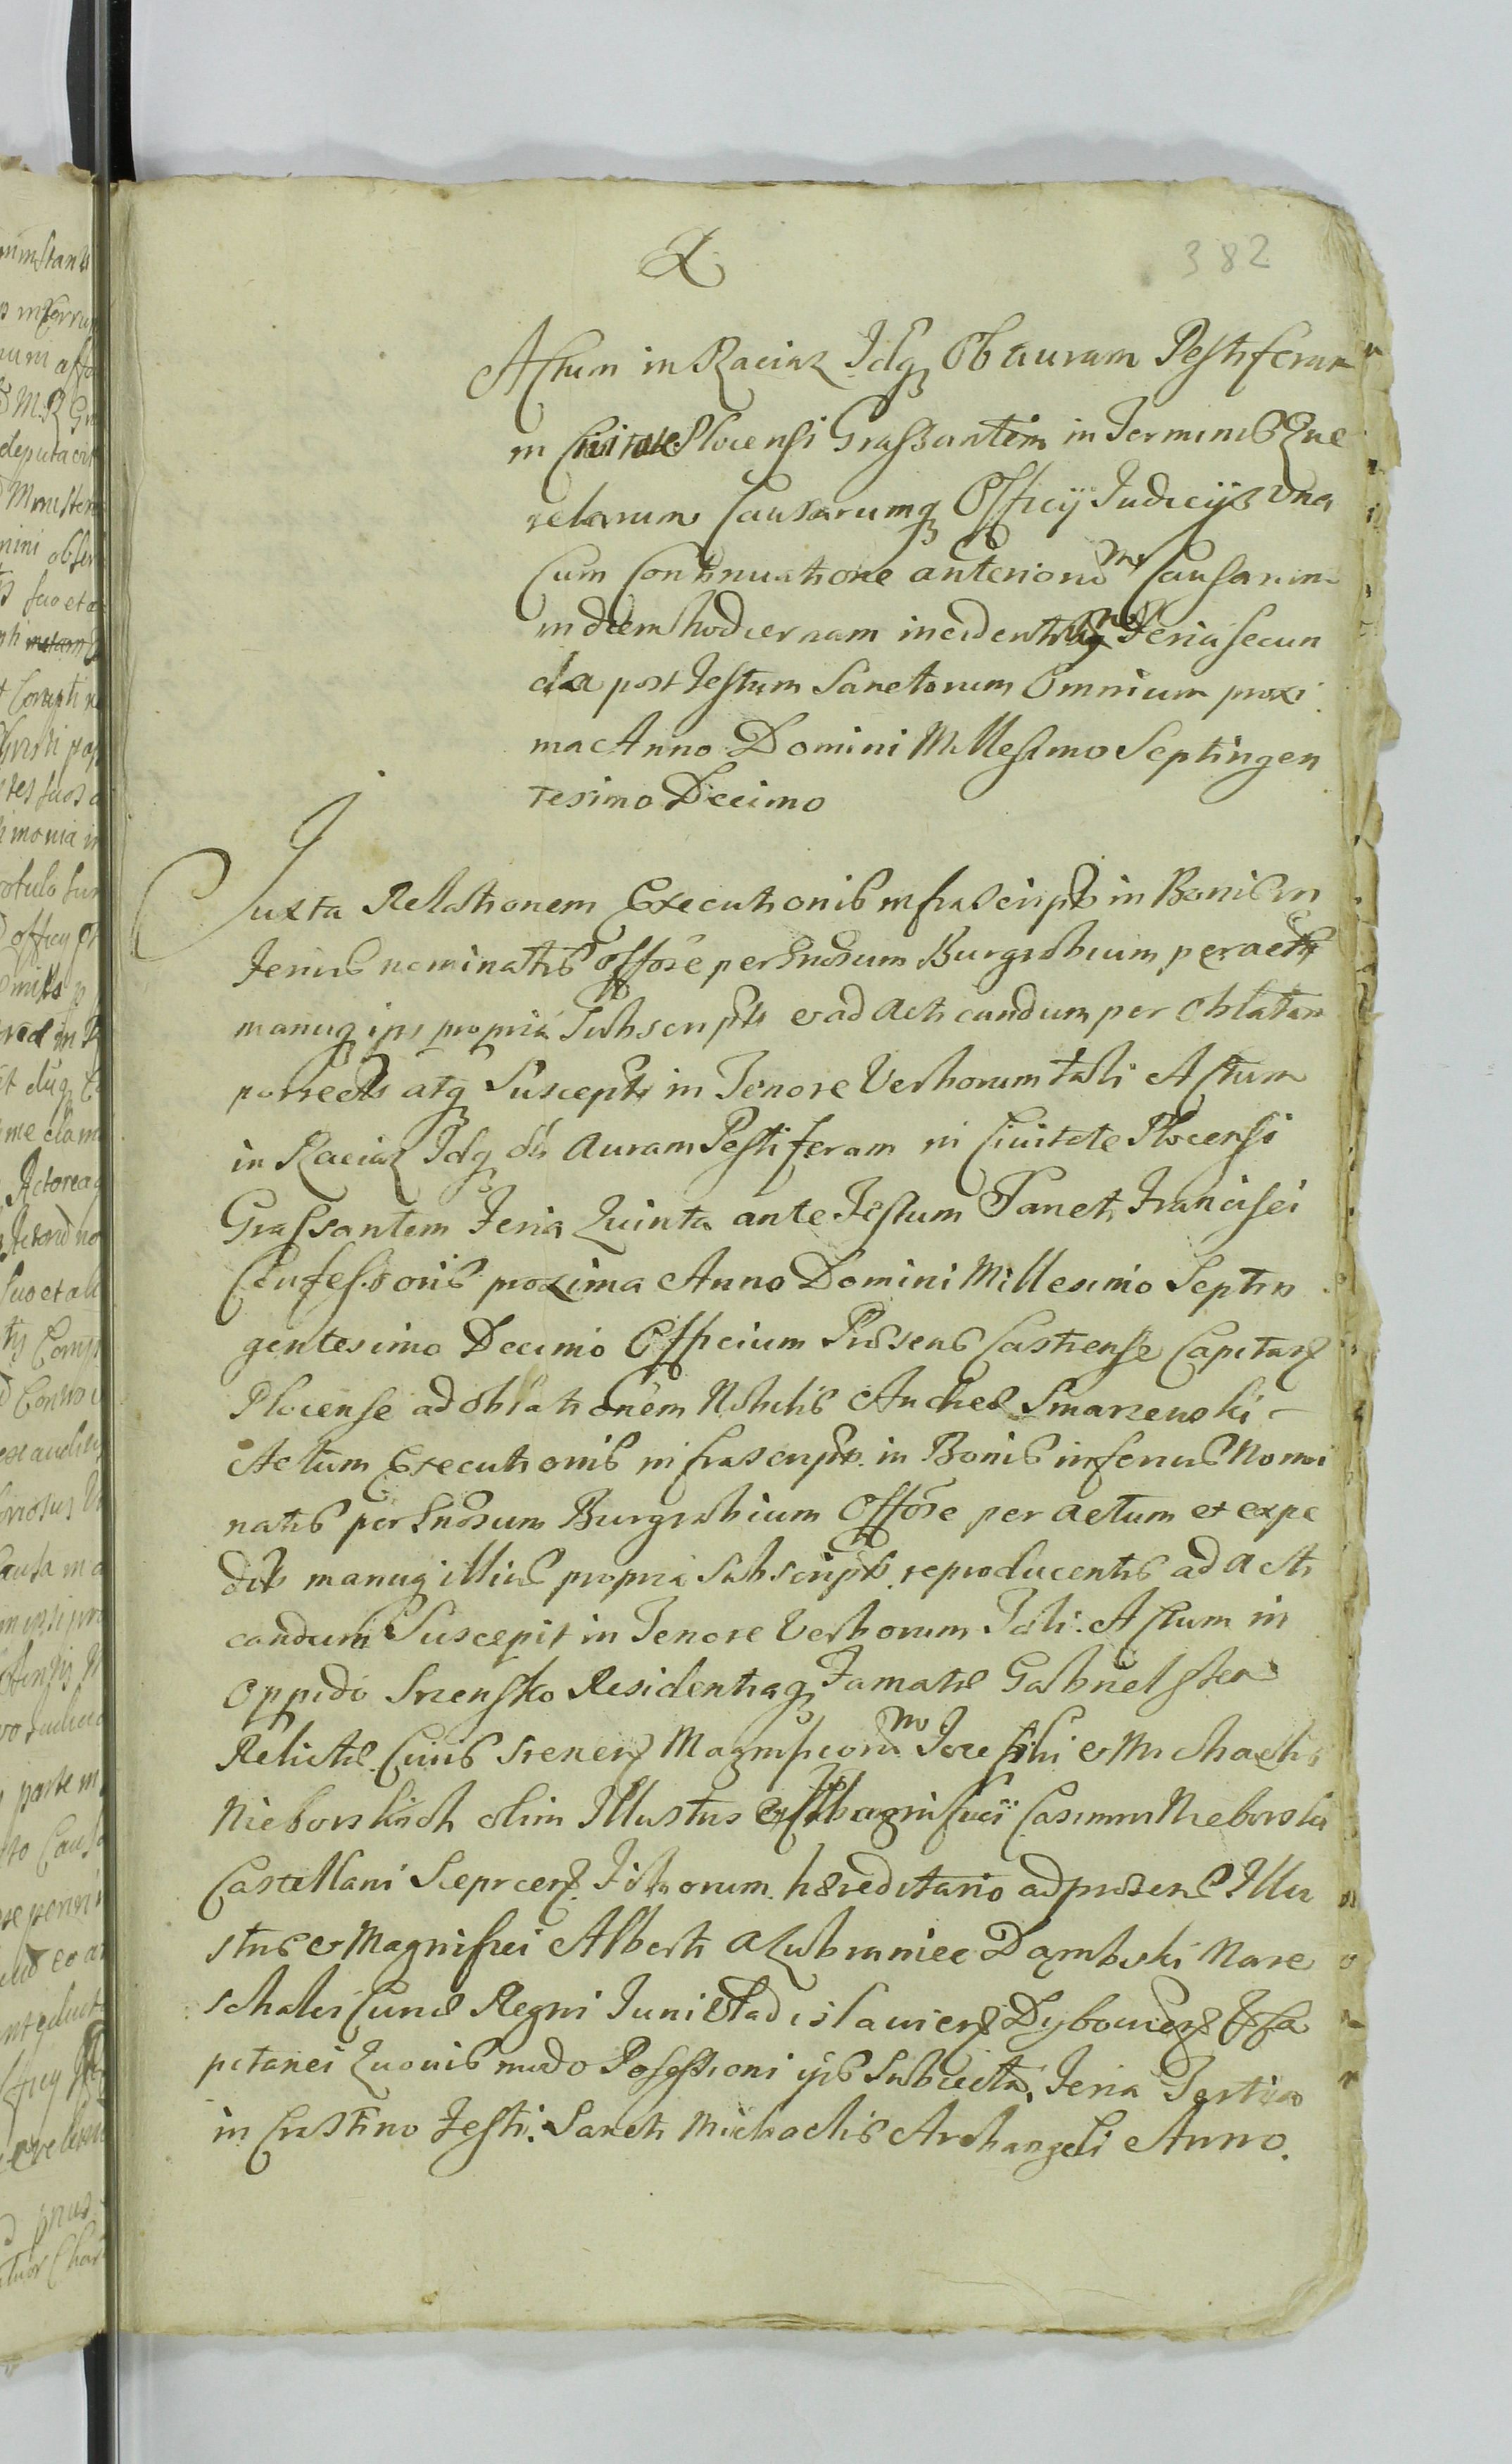 382
Actum in Raciąz Idq Ob auram Pestiferam
in Civitate Plocensi Grassantem in Terminis Que
relarum Causarumq Officij Judicijs una
Cum Continuatione anteriorum Causarum
in diem hodiernam incidentibus Feria secun
da post Festum Sanctorum Omnium proxi
ma Anno Domini Millesimo Septingen
tesimo Decimo
Juxta Relationem Executionis infrascriptæ in Bonis in
ferius nominatis offõse per Gnosum Burgrabium peractæ
manuq ips propriá Subscriptæ et ad acticandum per oblatam
porrectæ atq Susceptæ in Tenore Verborum tali Actum
in Raciąz Idq ob auram Pestiferam in Civitate Plocensi
Grassantem Feria Quinta ante Festum Sancti Francisci
Confessoris proxima Anno Domini Millesimo Septin
gentesimo Decimo Officium Præsens Castrense Capitane
Plocense ad oblationem Nobilis Andreæ Smarzewski
Actum Executionis infrascriptæ in Bonis inferius Nomi
natis per Gnosum Burgrabium Offõse per actum et expe
ditæ manuq illius propria subscriptæ reproducentis ad acti
candum Suscepit in Tenore Verborum Tali. Actum in
oppido Srensko Residentiaq Famatæ Gabrielska
Relictæ Civis Srenen Magnificorum Josephi et Michaelis
Nieborskich olim Illustris et Magnifici Casimiri Nieborski
Castellani Sieprcen Filiorum hæreditario ad præsens Illu
stris et Magnifici Alberti a Lubraniec Dąmbski Mare
schalci Curiæ Regni Juniwladislavien Dybovien Ca
pitanei Quovis modo Possessioni ips Subiecta, Feria Tertia
in Crastino Festi Sancti Michaelis Archangeli Anno.